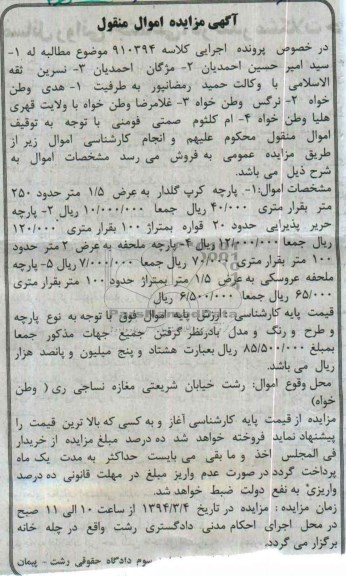 آگهی مزایده اموال منقول
در خصوص پرونده اجرایی کلاسه ۹۱۰۳۹۴ موضوع مطالبه له ۱-
سید امیر حسین احمدیان ۲- مژگان احمدیان ۳- نسرین ثقه
الاسلامی با وکالت حمید رمضانپور به طرفیت ۱- هدی وطن
خواه ۲- نرگس وطن خواه ۳- غلامرضا وطن خواه با ولایت قهری
هلیا وطن خواه ۴- ام کلثوم صمتی فومنی با توجه به توقیف
اموال منقول محکوم علیهم و انجام کارشناسی اموال زیر از
طریق مزایده عمومی به فروش می رسد مشخصات اموال به
شرح ذیل می باشد.
مشخصات اموال:۱- پارچه کرپ گلدار به عرض ۱/۵ متر حدود ۲۵۰
متر بقرار متری ۴۰/۰۰۰ ریال جمعا ۱۰/۰۰۰/۰۰۰ ریال ۲- پارچه
حریر پذیرایی حدود ۲۰ قواره بمتراژ ۱۰۰ بقرار متری ۱۲۰/۰۰۰
ریال جمعا ۱۲/۰۰۰/۰۰۰ ریال ۴- پارچه ملحفه به عرض ۲ متر حدود
۱۰۰ متر بقرار متری ۷۰/۰۰۰ ریال جمعا ۷/۰۰۰/۰۰۰ ریال ۵- پارچه
ملحفه عروسکی به عرض ۱/۵ متر بمتراژ حدود ۱۰۰ متر بقرار متری
۶۵/۰۰۰ ریال جمعا ۶/۵۰۰/۰۰۰ ریال
قیمت پایه کارشناسی: ارزش پایه اموال فوق با توجه به نوع پارچه
و طرح و رنگ و مدل بادرنظر گرفتن جمیع جهات مذکور جمعا
بمبلغ ۸۵/۵۰۰/۰۰۰ ریال بعبارت هشتاد و پنج میلیون و پانصد هزار
ریال می باشد.
محل وقوع اموال: رشت خیابان شریعتی مغازه نساجی ری ( وطن
خواه)
مزایده از قیمت پایه کارشناسی آغاز و به کسی که بالا ترین قیمت را
پیشنهاد نماید فروخته خواهد شد ده درصد مبلغ مزایده از خریدار
فی المجلس اخذ و ما بقی می بایست حداکثر به مدت یک ماه
پرداخت گردد در صورت عدم واریز مبلغ در مهلت قانونی ده درصد
واریزی به نفع دولت ضبط خواهد شد.
زمان مزایده : مزایده در تاریخ ۱۳۹۴/۳/۴ از ساعت ۱۰ الی ۱۱ صبح
در محل اجرای احکام مدنی دادگستری رشت واقع در چله خانه
برگزار می گردد.
سوم دادگاه حقوقی رشت - پیمان